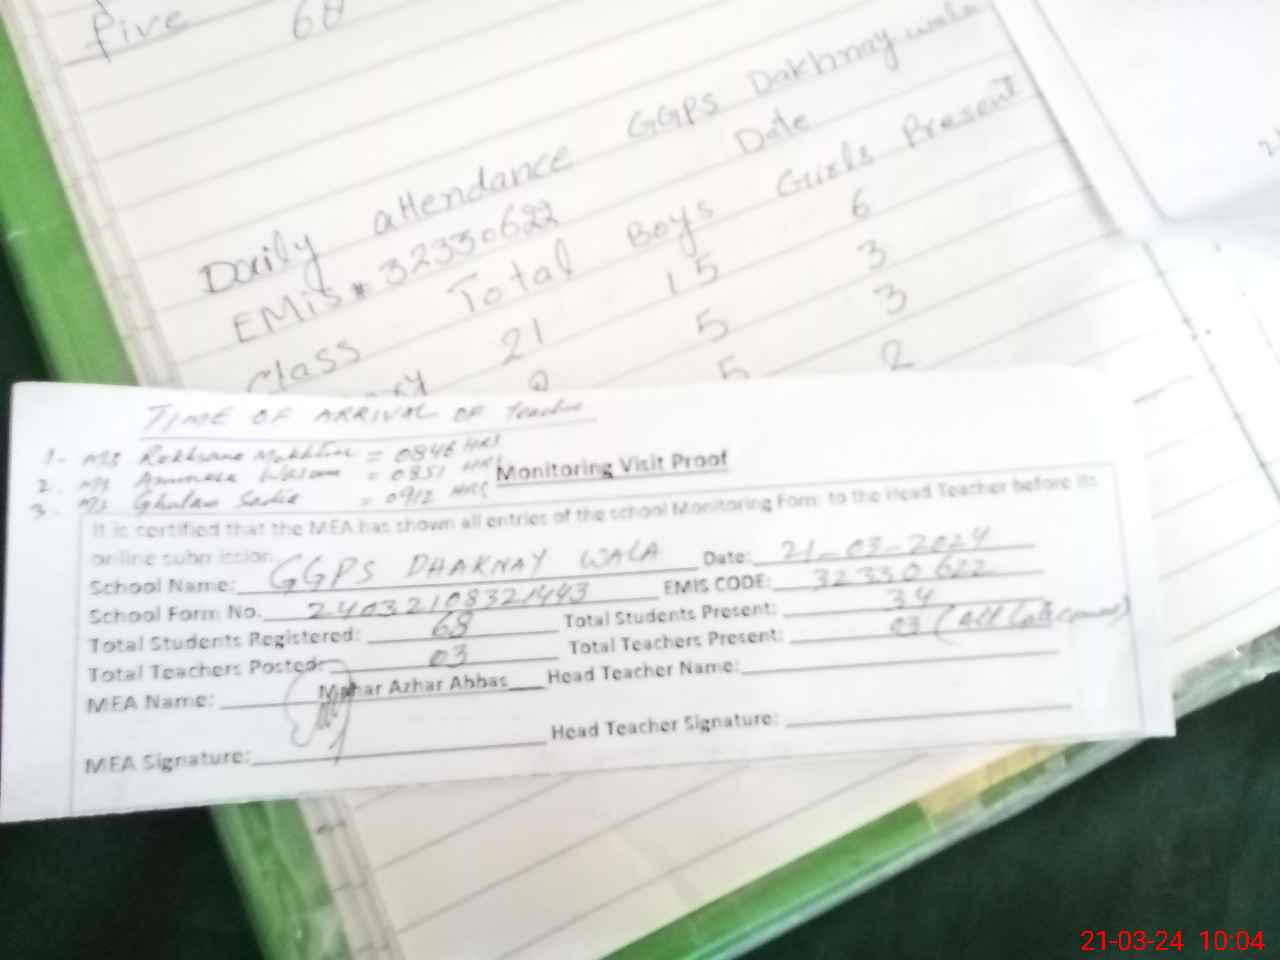 five 68
Daily attendance GGPS Dakhnay wala
EMIS # 32330622 Date
Class Total Boys Girls Present
21 15 6
5 3
5 3
2
TIME OF ARRIVAL OF Teacher
1- Ms = 0846 HRS
2. Ms = 0851 HRS
3. Ms Ghulam Sadia = 0912 HRS
Monitoring Visit Proof
It is certified that the MEA has shown all entries of the school Monitoring Form to the Head Teacher before its
online submission
School Name: GGPS DHAKNAY WALA Date: 21-03-2024
School Form No. 24032108321443 EMIS CODE: 32330622
Total Students Registered: 68 Total Students Present: 34
Total Teachers Posted: 03 Total Teachers Present: 03 (All Late comers)
MEA Name: Mahar Azhar Abbas Head Teacher Name:
MEA Signature: Head Teacher Signature:
21-03-24 10:04